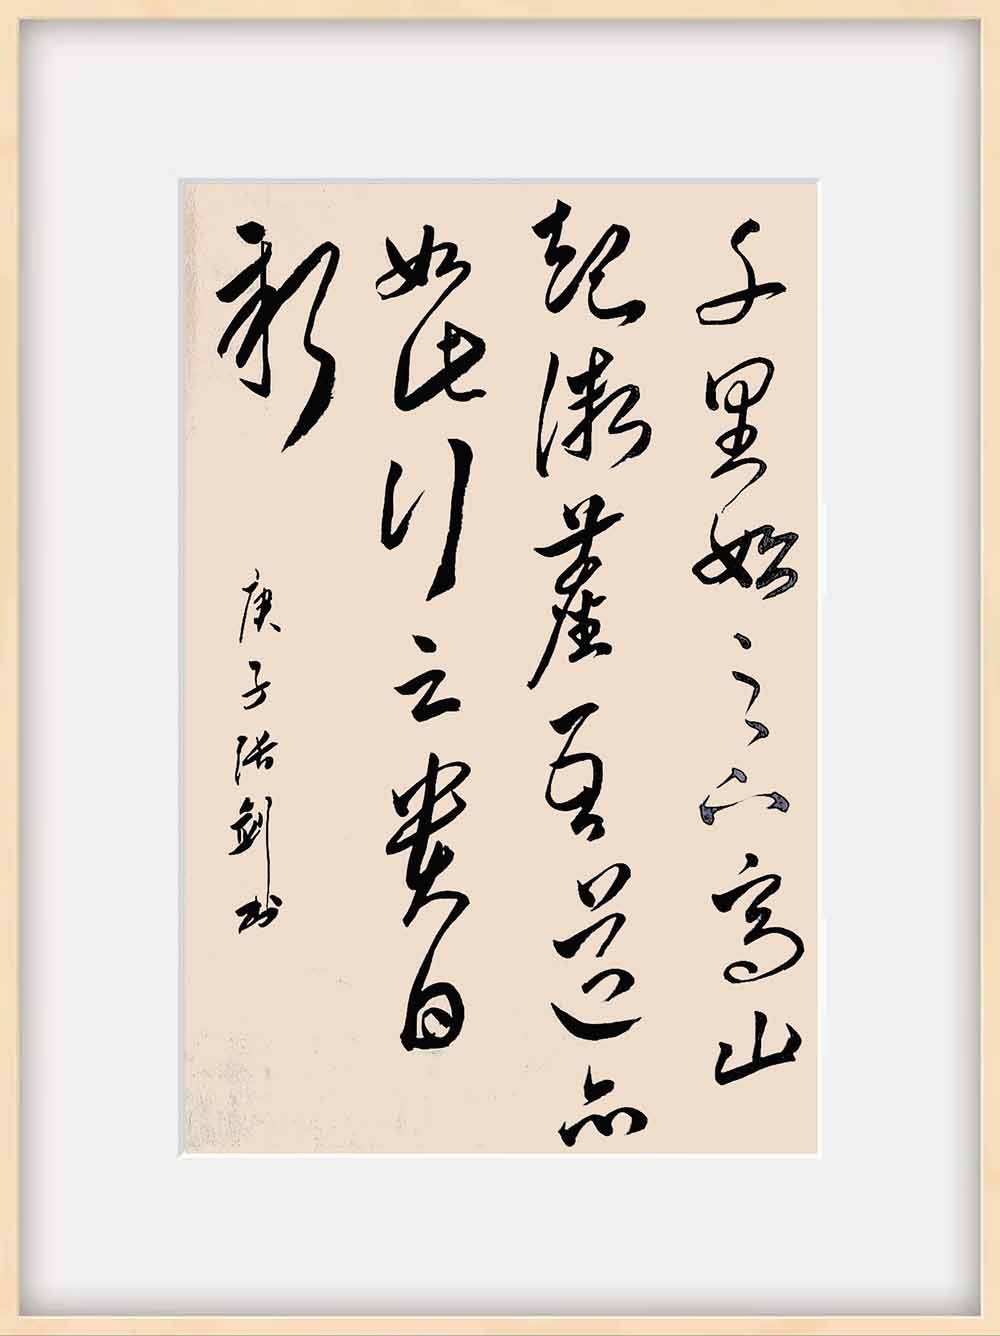 千里始足下高山
起微尘吾道亦
如此行之贵日
新
庚子张剑书